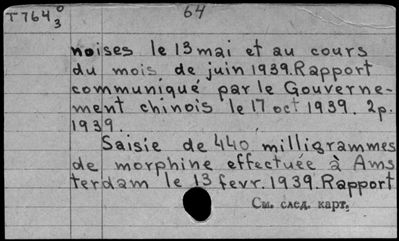 T764⁰₃ 64
noises le 13 mai et au cours
du mois de juin 1939. Rapport
communiqué par le Gouverne-
ment chinois le 17 oct 1939. 2p.
1939.
Saisie de 440 milligrammes
de morphine effectuée à Ams
terdam le 13 fevr. 1939. Rapport
См. след. карт.